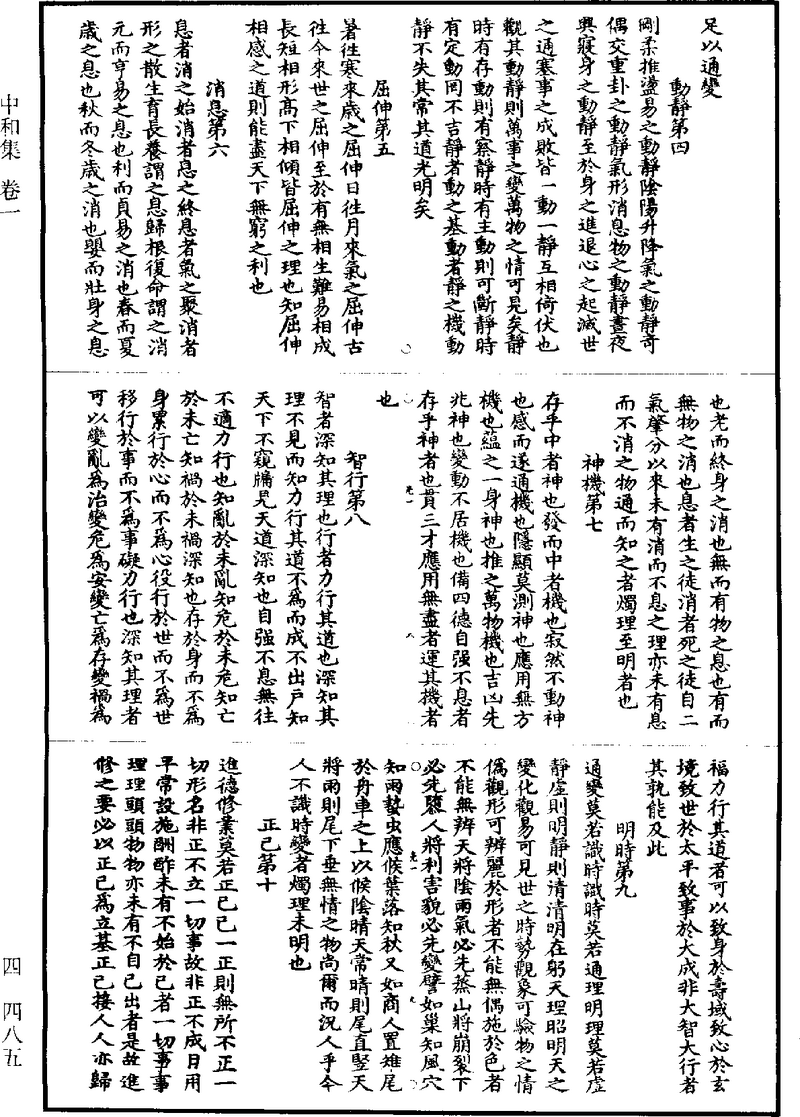 足以通變
動靜第四
剛柔推盪易之動靜陰陽升降氣之動靜奇
偶交重卦之動靜氣形消息物之動靜晝夜
興寢身之動靜至於身之進退心之起滅世
之通塞事之成敗皆一動一靜互相倚伏也
觀其動靜則萬事之變萬物之情可見矣靜
時有存動則有察靜時有主動則可斷靜時
有定動罔不吉靜者動之基動者靜之機動
靜不失其常其道光明矣
屈伸第五
暑往寒來歲之屈伸日往月來氣之屈伸古
往今來世之屈伸至於有無相生難易相成
長短相形高下相傾皆屈伸之理也知屈伸
相感之道則能盡天下無窮之利也
消息第六
息者消之始消者息之終息者氣之聚消者
形之散生育長養謂之息歸根復命謂之消
元而亨易之息也利而貞易之消也春而夏
歲之息也秋而冬歲之消也嬰而壯身之息
也老而終身之消也無而有物之息也有而
無物之消也息者生之徒消者死之徒自二
氣肇分以來未有消而不息之理亦未有息
而不消之物通而知之者燭理至明者也
神機第七
存乎中者神也發而中者機也寂然不動神
也感而遂通機也隱顯莫測神也應用無方
機也蘊之一身神也推之萬物機也吉凶先
兆神也變動不居機也備四德自強不息者
存乎神者也貫三才應用無盡者運其機者
也
智行第八
智者深知其理也行者力行其道也深知其
理不見而知力行其道不為而成不出戶知
天下不窺牖見天道深知也自強不息無往
不適力行也知亂於未亂知危於未危知亡
於未亡知禍於未禍深知也存於身而不為
身累行於心而不為心役行於世而不為世
移行於事而不為事礙力行也深知其理者
可以變亂為治變危為安變亡為存變禍為
福力行其道者可以致身於壽域致心於玄
境致世於太平致事於大成非大智大行者
其孰能及此
明時第九
通變莫若識時識時莫若通理明理莫若虛
靜虛則明靜則清清明在躬天理昭明天之
變化觀易可見世之時勢觀象可驗物之情
偽觀形可辨麗於形者不能無偶施於色者
不能無辨天將陰雨氣必先蒸山將崩裂下
必先隳人將利害貌必先變譬如巢知風穴
知雨蟄虫應候葉落知秋又如商人置雉尾
於舟車之上以候陰晴天常晴則尾直竪天
將雨則尾下垂無情之物尚爾而況人乎今
人不識時變者燭理未明也
正己第十
進德修業莫若正己己一正則無所不正一
切形名非正不立一切事故非正不成日用
平常設施酬酢未有不始於己者一切事事
理理頭頭物物亦未有不自己出者是故進
修之要必以正己為立基正己接人人亦歸
中和集 卷一
四 四八五